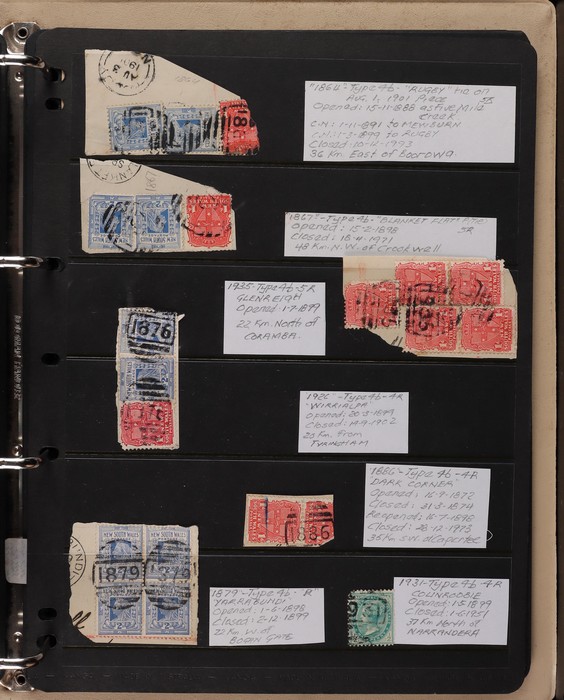 "1864" - Type 4b - "RUGBY" tie on
AUG. 1, 1901 Piece 5R
Opened: 15-11-1888 as Five Mile
Creek
C.N: 1-11-1891 to NEWBURN
C.N: 1-3-1899 to RUGBY
Closed: 10-12-1973
36 Km. East of Boorowa.
1867" - Type 4b - "BLANKET FLAT"
Opened: 15-2-1898 5R
Closed: 18-4-1971
48 Km N.W. of Crookwell
1935 - Type 4b - 5R
GLENREIGH
Opened: 1-7-1899
22 Km. North of
CORAMBA.
1876
1935
- Type 4b - 4R
Closed: 14-9-1902
23 Km. from
TYRINGHAM
1886 - Type 4b - 4R
DARK CORNER
Opened: 16-9-1872
Closed: 31-3-1874
Reopened: 16-7-1898
Closed: 28-12-1973
35 Km S.W. of Capertee
1886
NEW SOUTH WALES
1879
1879
1879 - Type 4b - R
YARRABUNDI
Opened: 1-6-1898
Closed: 2-12-1899
22 Km. W. of
BOGAN GATE
1931 - Type 4b 4R
COLINROOBIE
Opened: 1-5-1899
Closed: 1-6-1951
37 Km North of
NARRANDERA